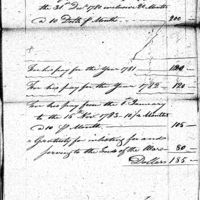 the 31 Decr 1780 inclusive 20 Months
@ 10 Dolls pr Month 200
For his pay for the Year 1781 120
For his pay for the Year 1782 120
For his pay from the 1 January
to the 15 Nov 1783 10½ Months
@ 10 pr Month 105
Gratuity for inlisting for and
serving to the End of the War 80
Dollars 185